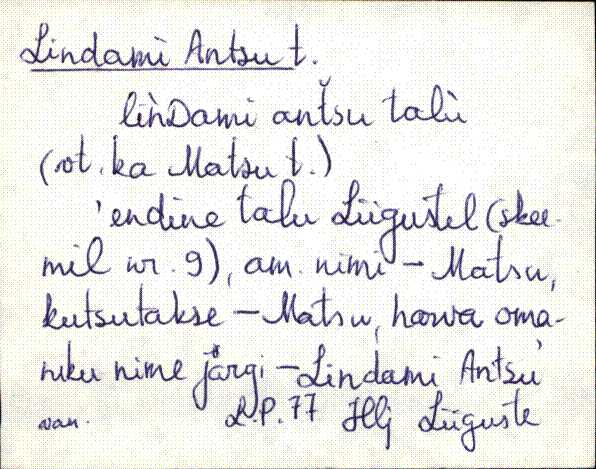 Lindami Antsu t.
liǹDami antšu talù
(vt. ka Matsu t.)
'endine talu Liigustel (skee-
mil nr. 9), am. nimi – Matsu,
kutsutakse – Matsu, harva oma-
niku nime järgi – Lindami Antsu
van. L.P. 77 Hlj Liiguste